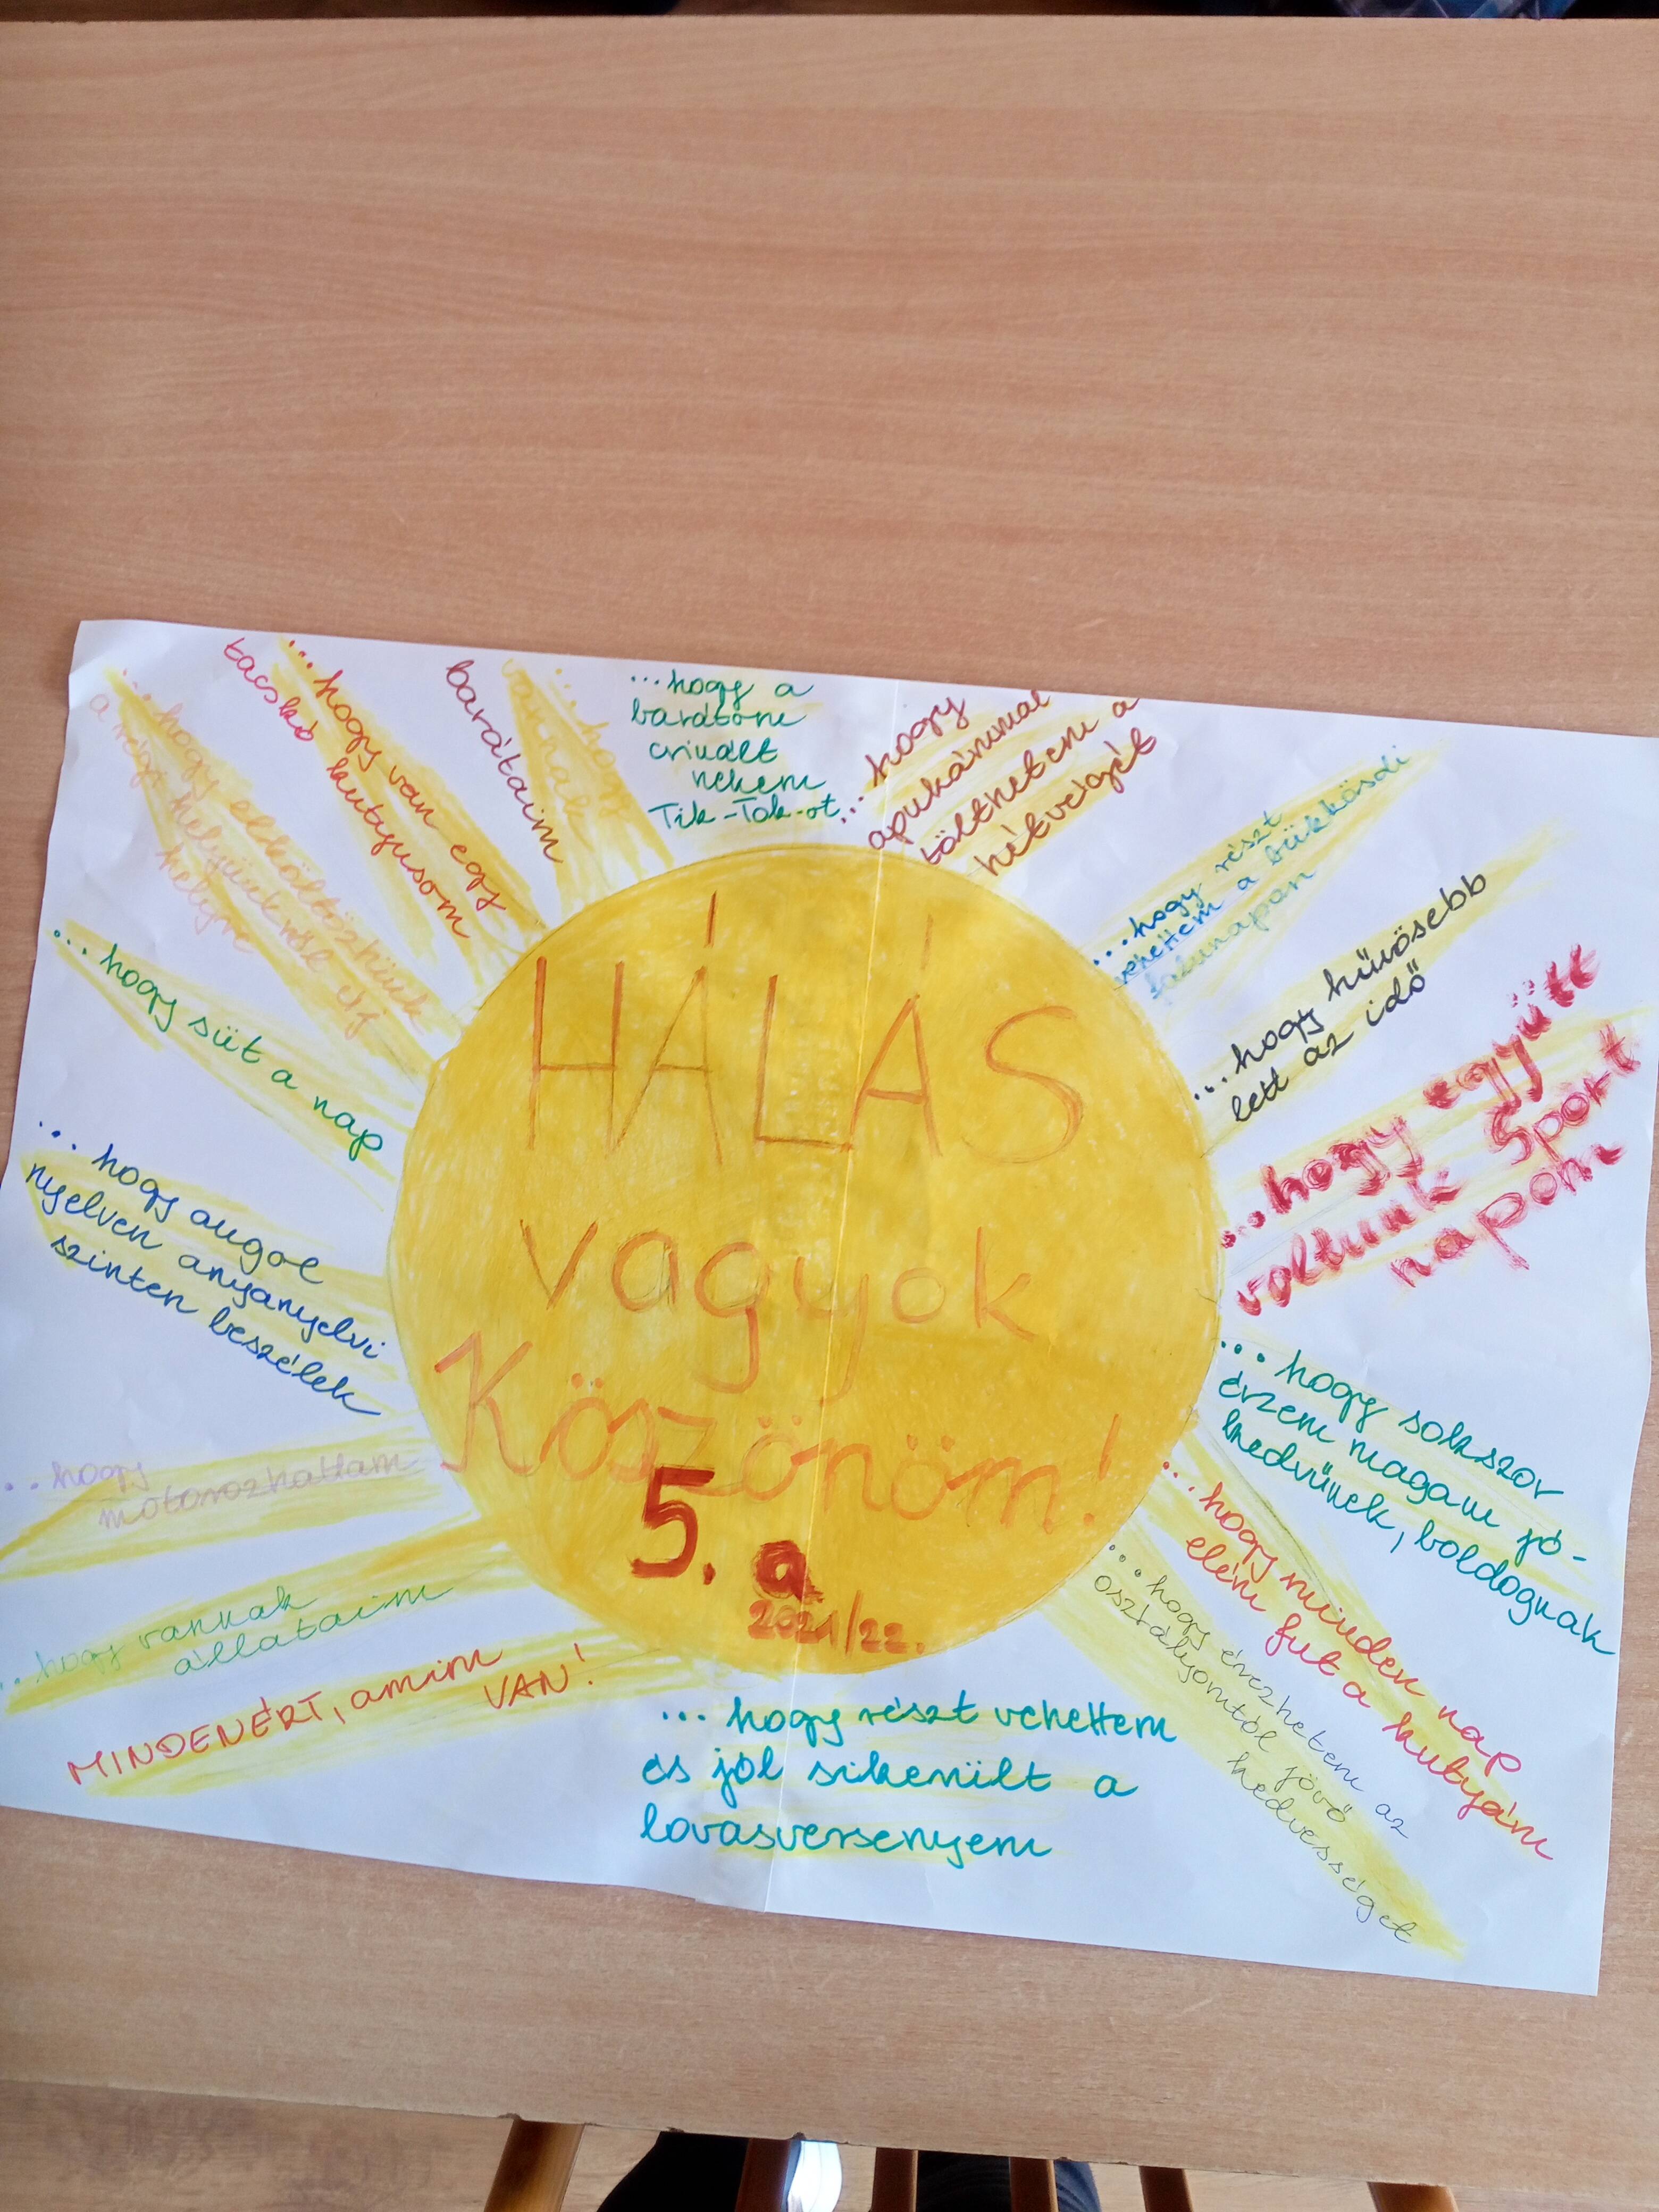 HÁLÁS
vagyok
Köszönöm!
5. a
2021/22.
...hogy a
barátom
csinált
nekem
Tik-Tok-ot
...hogy
apukámmal
tölthetem a
hétvégét
...hogy részt
vehettem a bükkösdi
falunapon
...hogy hűvösebb
lett az idő
...hogy együtt
voltunk Sport
napom
...hogy sokszor
érzem magam jó-
kedvűnek, boldognak
...hogy minden nap
elém fut a kutyám
...hogy érezhetem az
osztályomtól jövő
kedvességet
...hogy részt vehettem
és jól sikerült a
lovasversenyem
MINDENÉRT, amim
VAN!
...hogy vannak
állataim
...hogy
motorozhattam
...hogy angol
nyelven anyanyelvi
szinten beszélek
...hogy süt a nap
...hogy elköltözünk
a régi helyünkről új
helyre
...hogy van egy
tacskó kutyusom
...hogy
vannak
barátaim